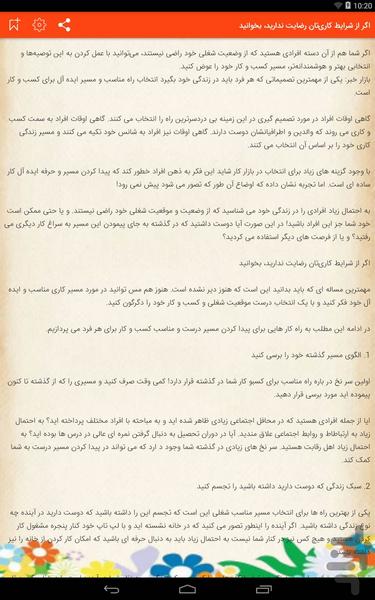 10:20
اگر از شرایط کاری‌تان رضایت ندارید، بخوانید
اگر شما هم از آن دسته افرادی هستید که از وضعیت شغلی خود راضی نیستند، می‌توانید با عمل کردن به این توصیه‌ها و
انتخابی بهتر و هوشمندانه‌تر، مسیر کسب و کار خود را عوض کنید.
بازار خبر: یکی از مهمترین تصمیماتی که هر فرد باید در زندگی خود بگیرد انتخاب راه مناسب و مسیر ایده آل برای کسب و کار
است.
گاهی اوقات افراد در مورد تصمیم گیری در این زمینه بی دردسرترین راه را انتخاب می کنند. گاهی اوقات افراد به سمت کسب
و کاری می روند که والدین و اطرافیانشان دوست دارند. گاهی اوقات نیز افراد به شانس خود تکیه می کنند و مسیر زندگی
کاری خود را بر اساس آن انتخاب می کنند.
با وجود گزینه های زیاد برای انتخاب در بازار کار شاید این فکر به ذهن افراد خطور کند که پیدا کردن مسیر و حرفه ایده آل کار
ساده ای است. اما تجربه نشان داده که اوضاع آن طور که تصور می شود پیش نمی رود!
به احتمال زیاد افرادی را در زندگی خود می شناسید که از وضعیت و موقعیت شغلی خود راضی نیستند. و یا حتی ممکن است
خود شما جزء این افراد باشید! در این صورت آیا دوست داشتید که در گذشته به جای پیمودن این مسیر به سراغ کار دیگری می
رفتید؟ و یا از فرصت های دیگر استفاده می کردید؟
اگر از شرایط کاری‌تان رضایت ندارید، بخوانید
مهمترین مساله ای که باید بدانید این است که هنوز دیر نشده است. هنوز هم می توانید در مورد مسیر کاری مناسب و ایده
آل خود فکر کنید و با یک انتخاب درست موقعیت شغلی و کسب و کار خود را دگرگون کنید.
در ادامه این مطلب به راه کار هایی برای پیدا کردن مسیر درست و مناسب کسب و کار برای هر فرد می پردازیم.
1. الگوی مسیر گذشته خود را برسی کنید
اولین سر نخ در باره راه مناسب برای کسبو کار شما در گذشته قرار دارد! کمی وقت صرف کنید و مسیری را که از گذشته تا کنون
پیموده اید مورد برسی قرار دهید.
ایا از جمله افرادی هستید که در محافل اجتماعی زیادی ظاهر شده اید و به مباحثه با افراد مختلف پرداخته اید؟ به احتمال
زیاد به ارتباطاط و روابط اجتماعی علاق مندید. آیا در دوران تحصیل به دنبال گرفتن نمره ای عالی در درس ها بوده اید؟ به
احتمال زیاد اهل رقابت هستید. سر نخ های زیادی در گذشته شما وجود د ارد که می تواند در پیدا کردن مسیر درست به شما
کمک کند.
2. سبک زندگی که دوست دارید داشته باشید را تجسم کنید
یکی از بهترین راه ها برای انتخاب مسیر مناسب شغلی این است که تجسم این را داشته باشید که دوست دارید در آینده چه
نوع زندگی داشته باشید. اگر آینده را اینطور تصور می کنید که در خانه نشسته اید و با لپ تاپ خود کنار پنجره مشغول کار
کردن هستید و هیچ کس نیز در کنار شما نیست به احتمال زیاد باید به دنبال حرفه ای باشید که امکان کار کردن از خانه را نیز